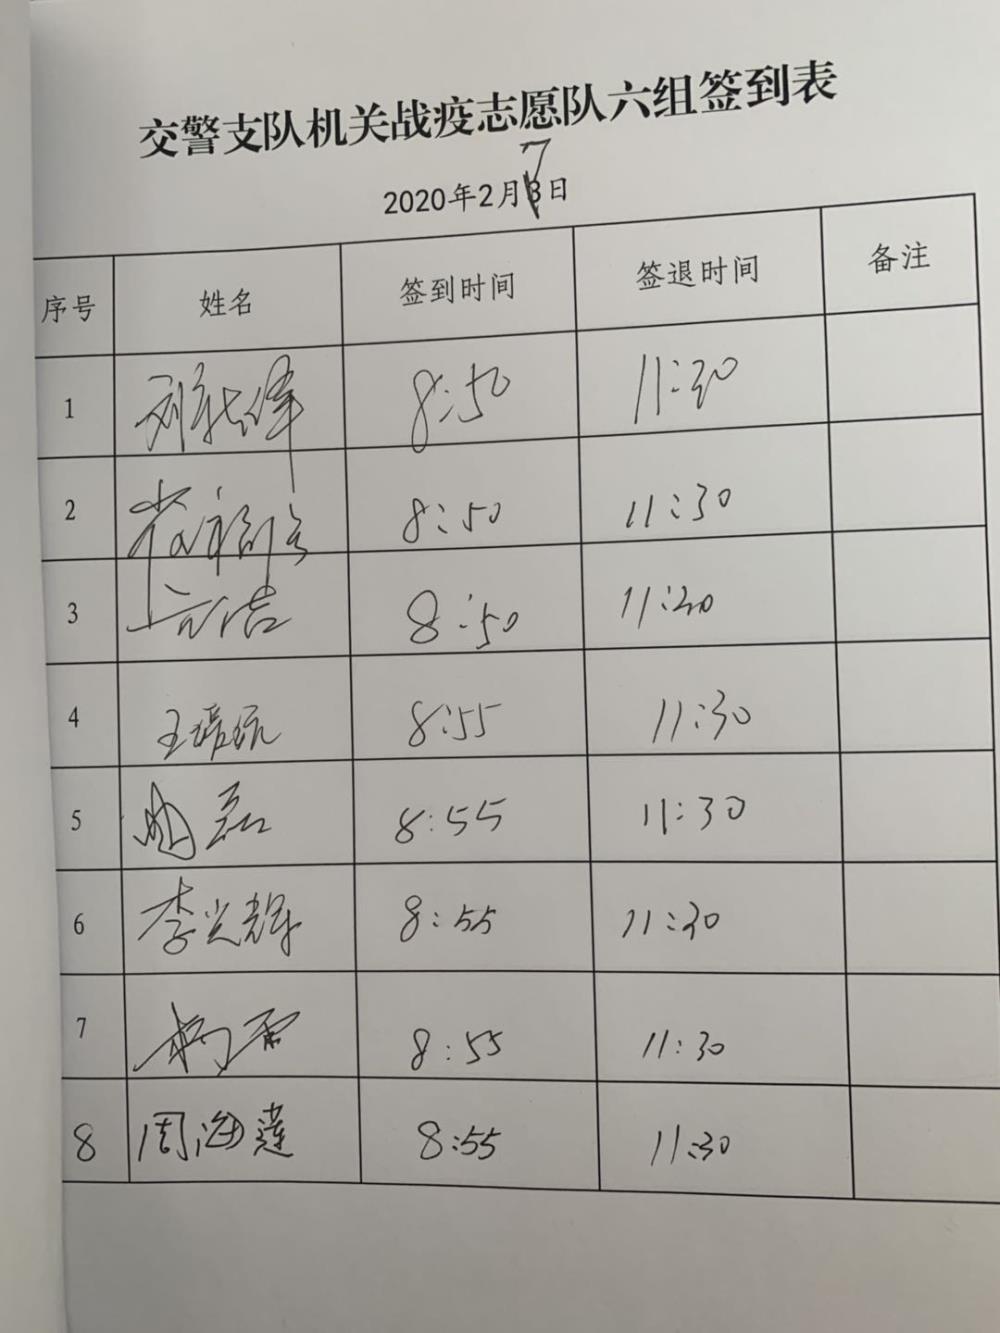 交警支队机关战疫志愿队六组签到表
2020年2月7日
序号 姓名 签到时间 签退时间 备注
1 8:50 11:30
2 8:50 11:30
3 8:50 11:30
4 王 8:55 11:30
5 磊 8:55 11:30
6 李光辉 8:55 11:30
7 杨雷 8:55 11:30
8 周海莲 8:55 11:30